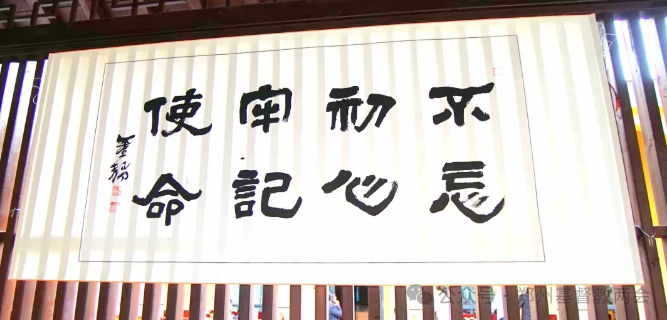 不忘
初心
牢記
使命
公众号·郑州基督教两会